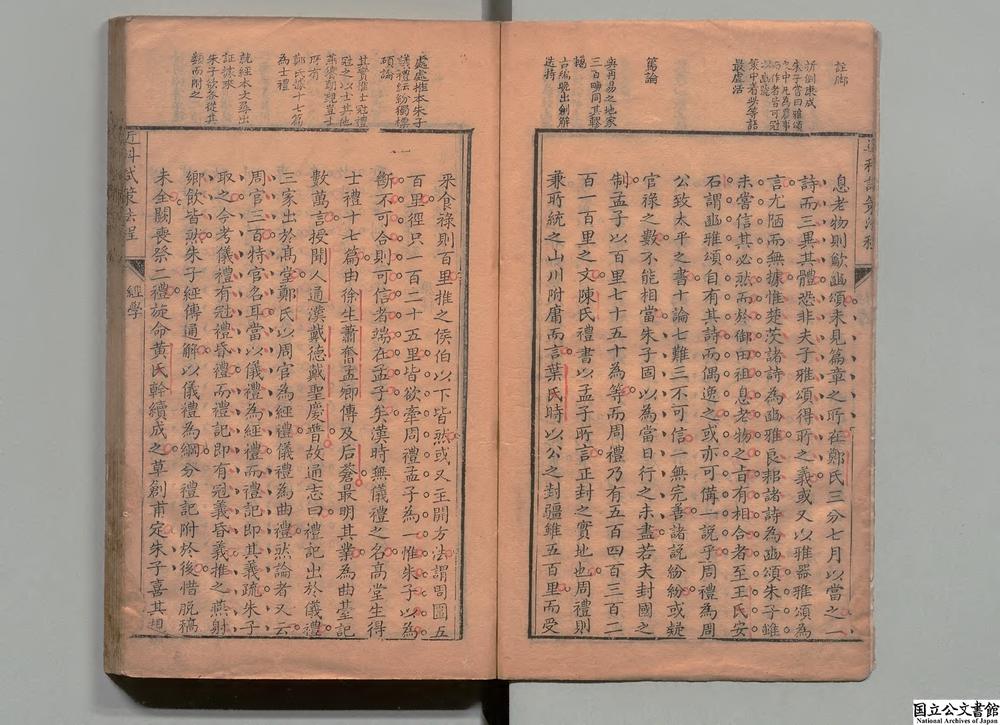 註脚
新創康成
朱子嘗曰雅頌
之中凡為農事
而作者皆可冠
以豳號
策中着此等語
最虛活
篤論
與再易之地家
三百畮同其轇
轕
古編晚出創解
造持
息老物則歙豳頌未見篇章之所在鄭氏三分七月以當之一
詩而三異其體恐非夫子雅頌得所之義或又以雅器雅頌為
言尤陋而無據惟楚茨諸詩為豳雅良耜諸詩為豳頌朱子雖
未嘗信其必然而於御田祖息老物之旨有相合者至王氏安
石謂豳雅頌自有其詩而偶逸之或亦可備一說乎周禮為周
公致太平之書十論七難三不可信一無完善諸說紛紛或疑
官祿之數不能相當朱子固以為當日行之未盡若夫封國之
制孟子以百里七十五十為等而周禮乃有五百四百三百二
百一百里之文陳氏禮書以孟子所言正封之實地也周禮則
兼所統之山川附庸而言葉氏時以公之封疆雖五百里而受
處處推本朱子
議禮紜紛獨標
碩論
其實推士冠禮
冠之以士其他
燕饗朝覲豈士
所有
鄭氏據十七篇
為士禮
就經本文尋出
証據來
朱子欲各從其
類而附之
近科試策法程
經學
采食祿則百里推之侯伯以下皆然或又主開方法謂周圖五
百里徑只一百二十五里皆欲牽周禮孟子為一惟朱子以為
斷不可合則可信者端在孟子矣漢時無儀禮之名高堂生得
士禮十七篇由徐生蕭奮孟卿傳及后蒼最明其業為曲臺記
數萬言授聞人通漢戴德戴聖慶普故通志曰禮記出於儀禮
三家出於高堂鄭氏以周官為經禮儀禮為曲禮然論者又云
周官三百特官名耳當以儀禮為經禮而禮記即其義疏朱子
取之今考儀禮有冠禮昏禮而禮記即有冠義昏義推之燕射
鄉飲皆然朱子經傳通解以儀禮為綱分禮記附於後惜脫稿
未全闕喪祭二禮旋命黃氏幹續成之草創甫定朱子喜其規
国立公文書館
National Archives of Japan